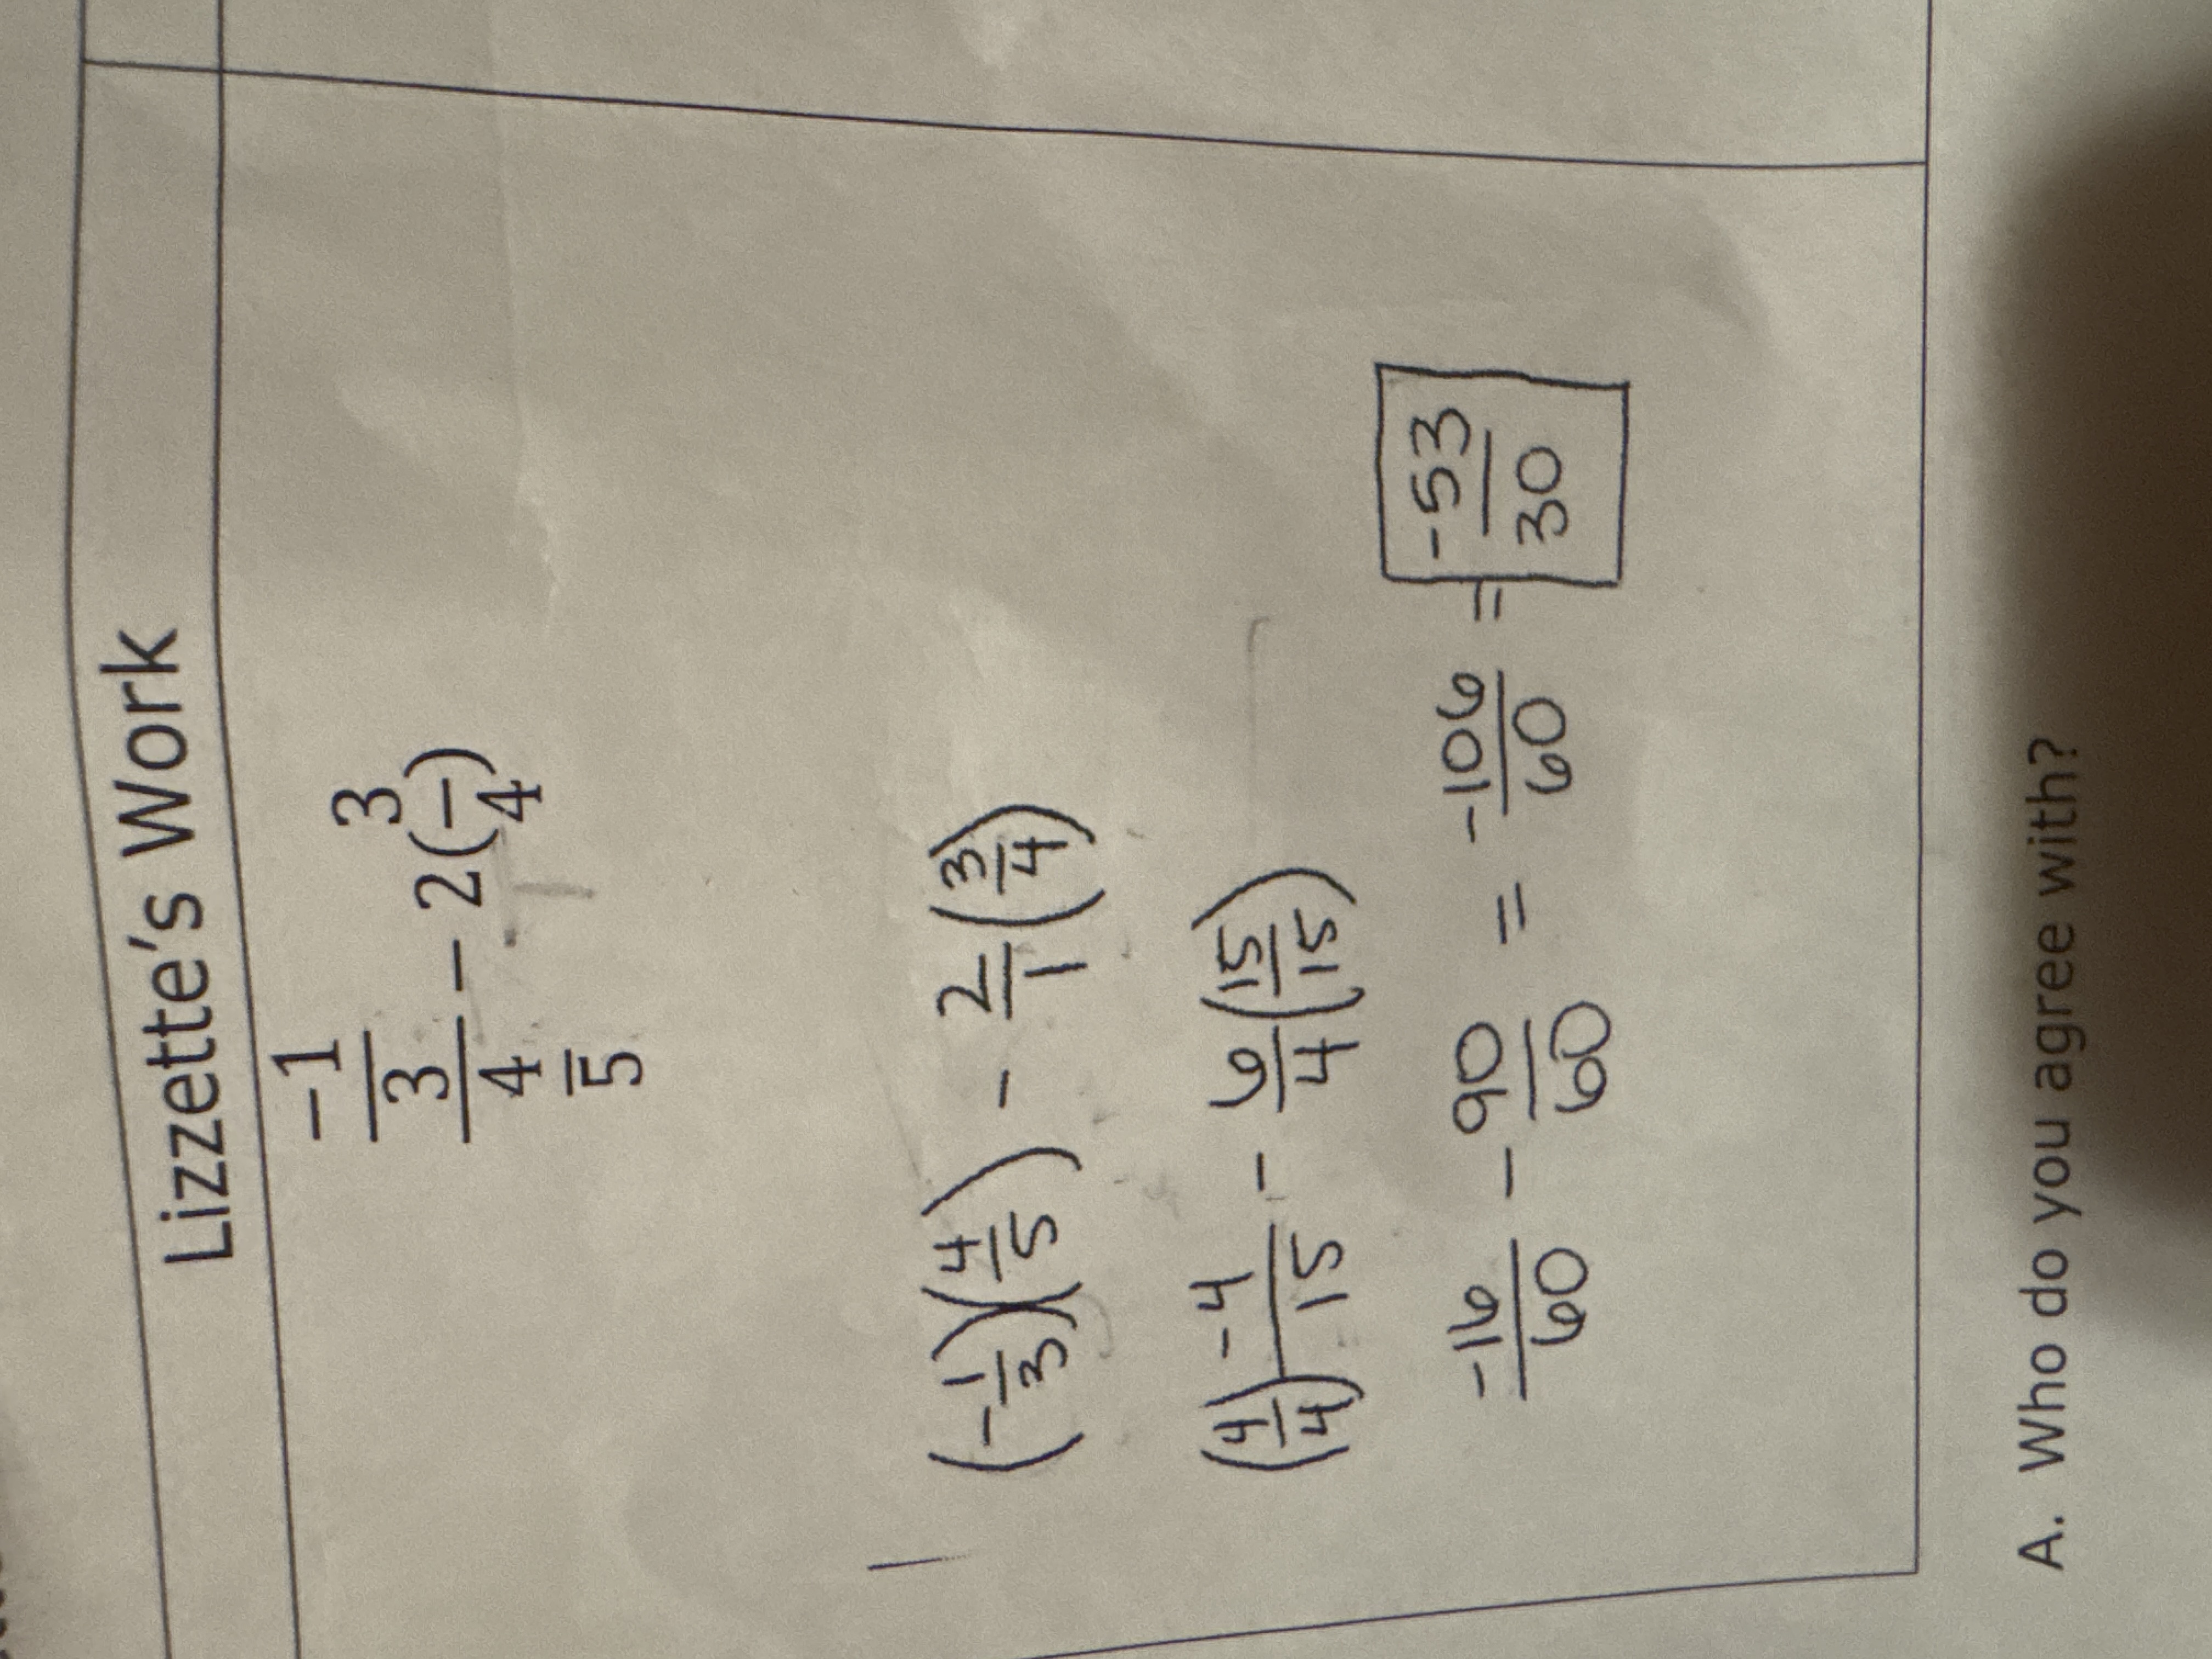 Lizzette's Work
-1
3
4
5
- 2(3/4)
(-1/3)(4/5) - 2/1(3/4)
(4/4) -4/15 - 6/4(15/15)
-16/60 - 90/60 = -106/60 = -53/30
A. Who do you agree with?